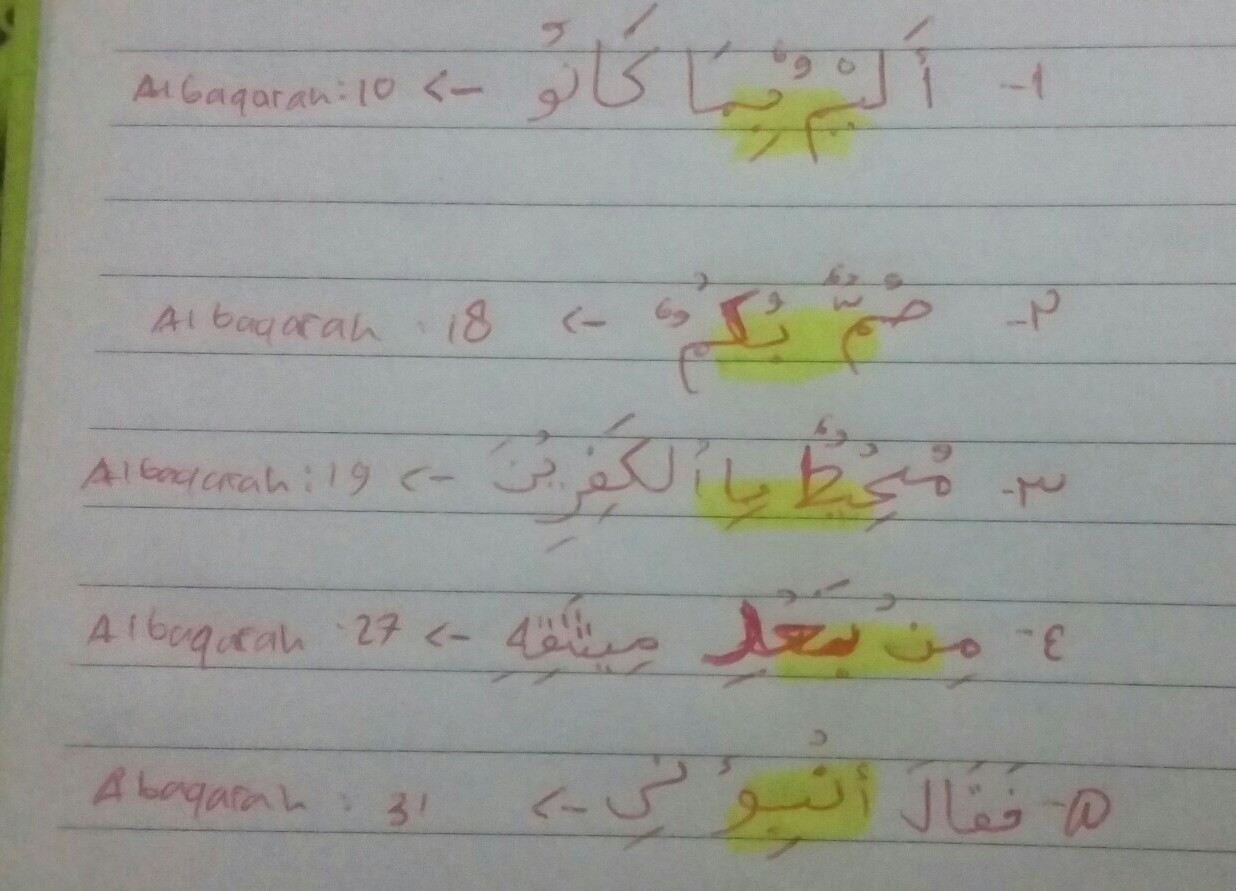 ١- أَلِيْمٌ بِمَا كَانُو <- Albaqarah: 10
٢- صُمٌّ بُكْمٌ <- Albaqarah : 18
٣- مُحِيْطٌ بِاْلكَفِرِيْنَ <- Albaqarah : 19
٤- مِنْ بَعْدِ مِيثَقِهِ <- Albaqarah : 27
٥- فَقَالَ أَنْبِؤُنِي <- Abaqarah : 31